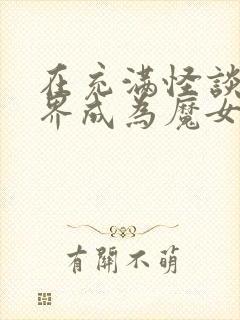 在充滿怪談
界成為魔女
有關不萌